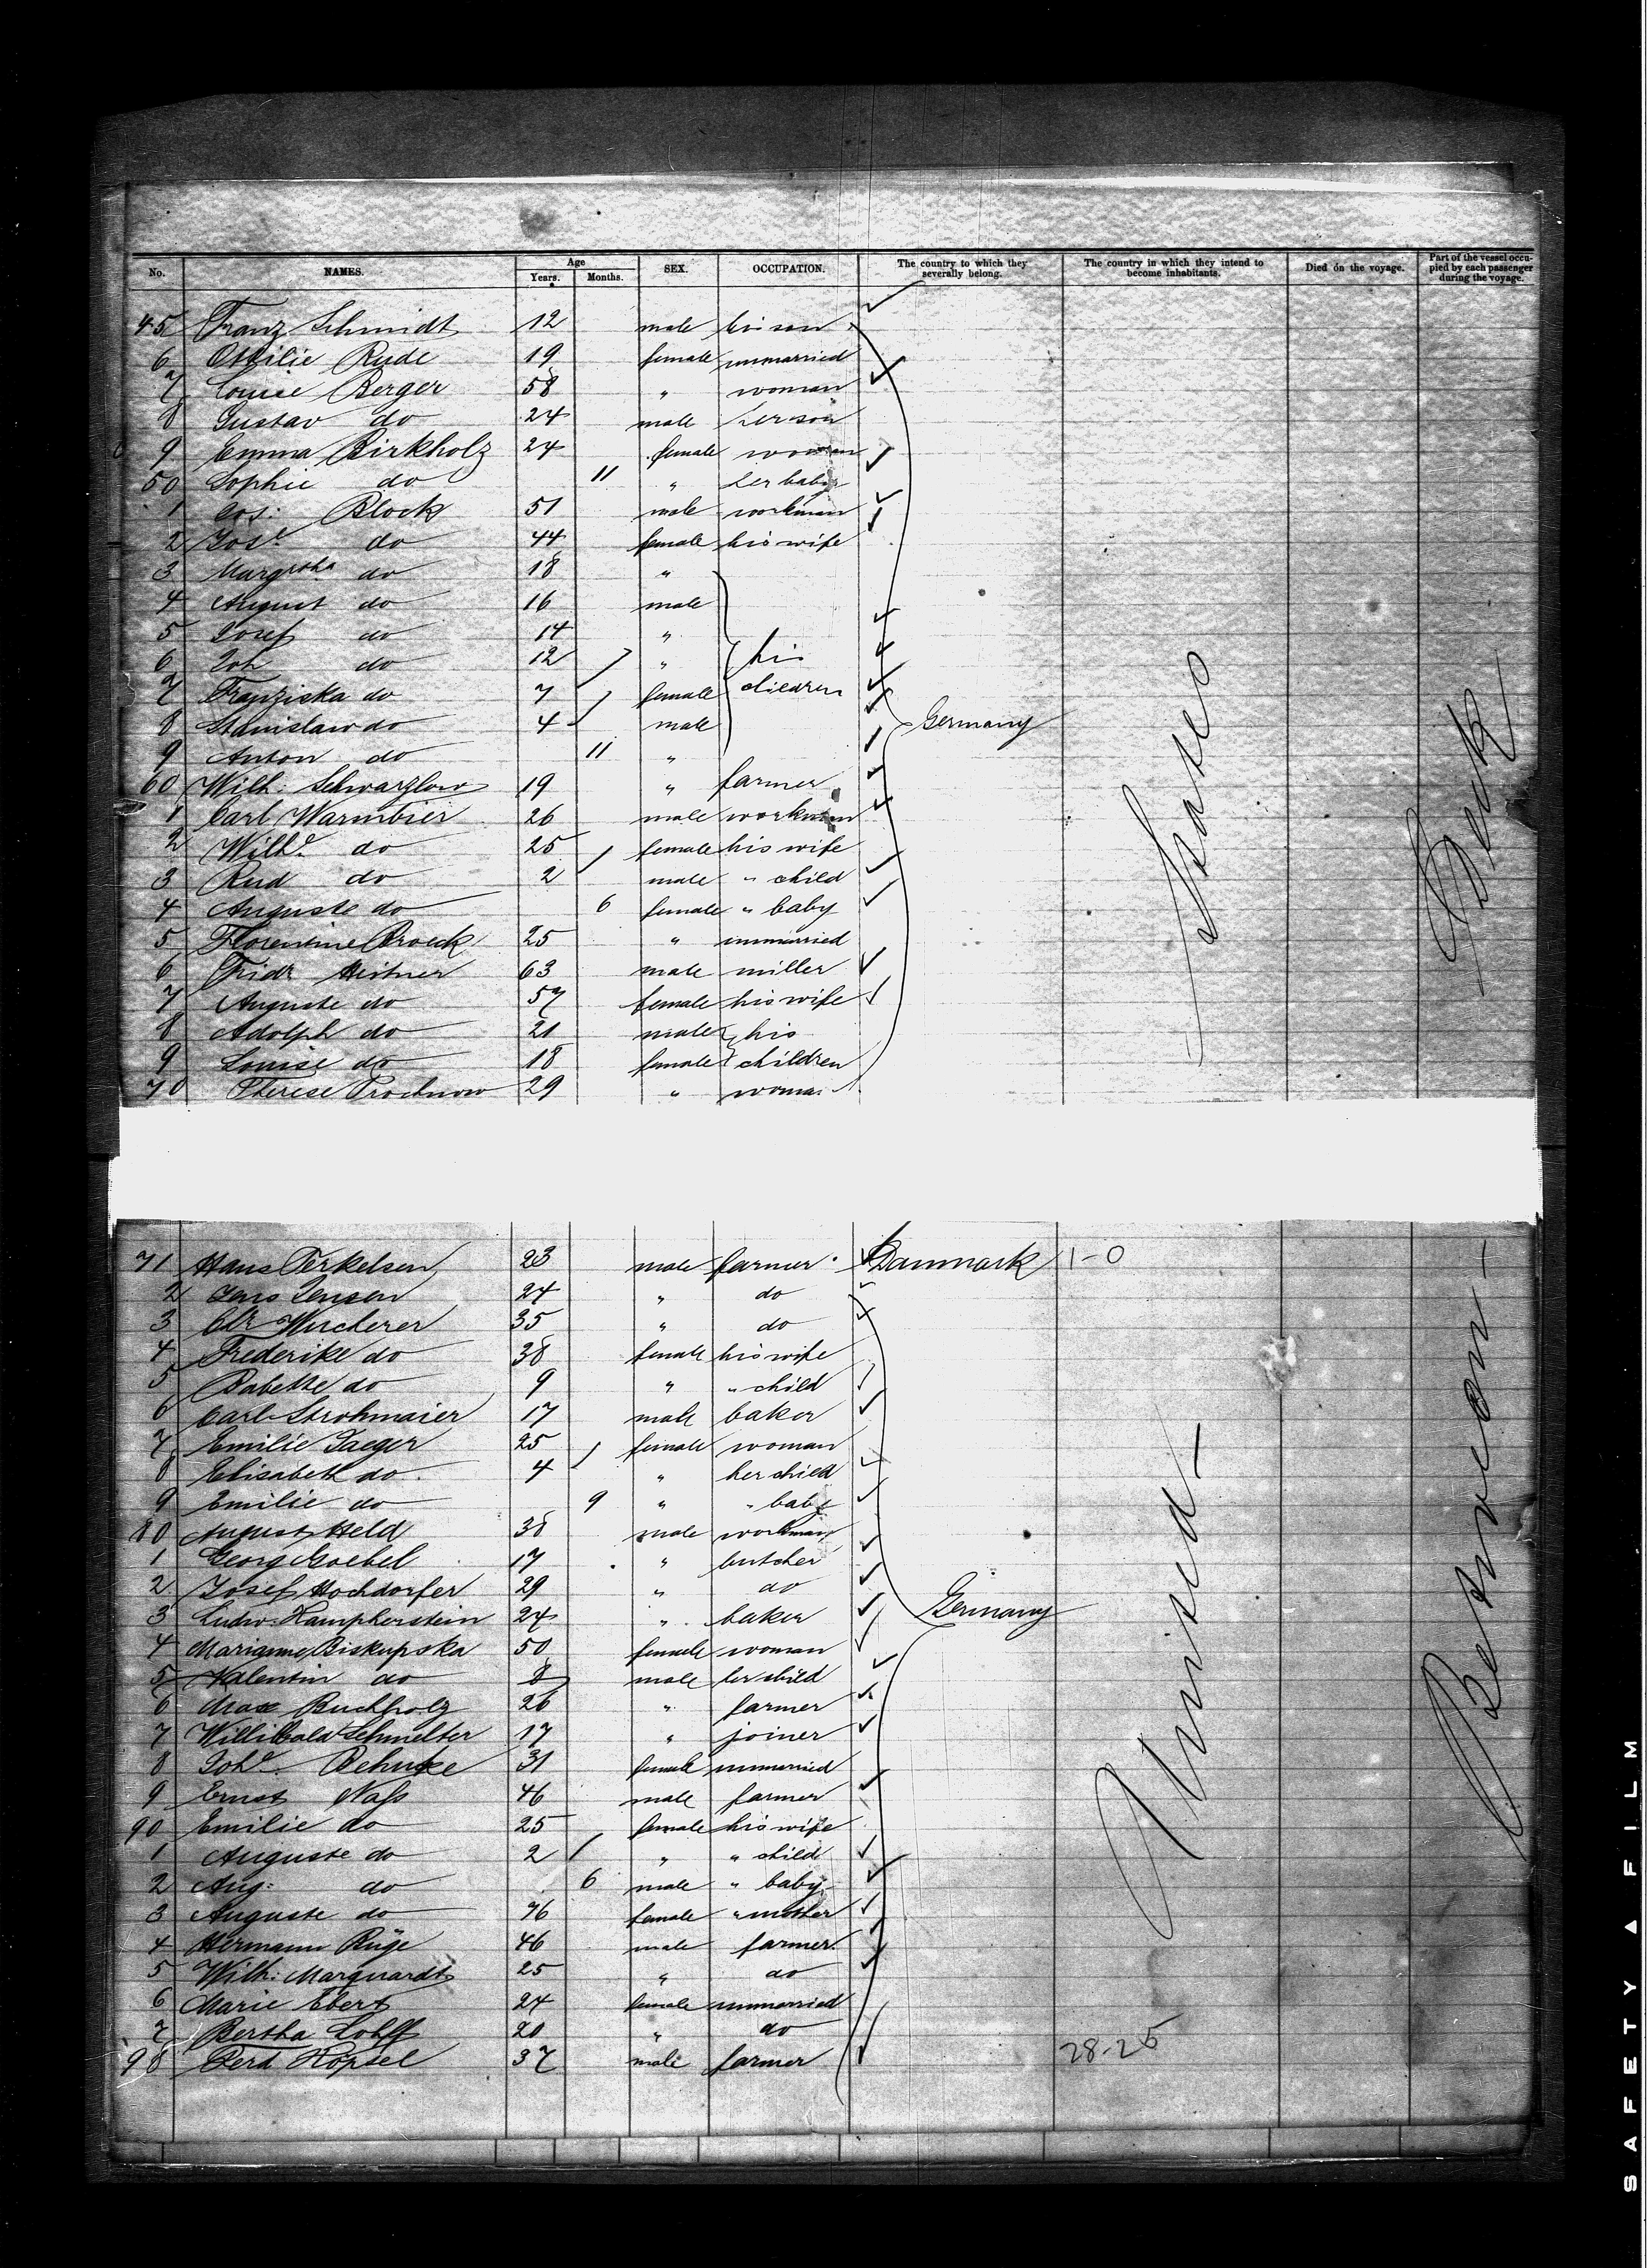 No. NAMES. Age Years. Months. SEX. OCCUPATION. The country to which they severally belong. The country in which they intend to become inhabitants. Died on the voyage. Part of the vessel occupied by each passenger during the voyage.
45 Franz Schmidt 12 male his son
6 Ottilie Rude 19 female unmarried
7 Louise Berger 58 " woman
8 Gustav do 24 male her son
9 Emma Birkholz 24 female woman
50 Sophie do 11 " her baby
1 Block 51 male workman
2 Jos.e do 44 female his wife
3 Margretha do 18 "
4 August do 16 male
5 Josef do 14 "
6 Joh do 12 " his
7 Franziska do 7 female children
8 Stanislaw do 4 male Germany
9 Anton do 11 "
60 Wilh: Schwarzlow 19 " farmer
1 Carl Warmbier 26 male workman
2 Wilh.e do 25 female his wife
3 Rud do 2 male " child
4 Auguste do 6 female " baby
5 Florentine Broeck 25 " unmarried
6 Fridr Heitner 63 male miller
7 Auguste do 57 female his wife
8 Adolph do 21 male his
9 Louise do 18 female children
70 Therese Prochnow 29 " woman
States
Deck
71 Hans Terkelsen 23 male farmer Danmark 1-0
2 Jens Jensen 24 " do
3 Chr Wucherer 35 " do
4 Frederike do 38 female his wife
5 Babette do 9 " " child
6 Carl Strohmaier 17 male baker
7 Emilie Jaeger 25 female woman
8 Elisabeth do 4 " her child
9 Emilie do 9 " " baby
80 August Held 38 male workman
1 Georg Goebel 17 " butcher
2 Josef Hochdorfer 29 " do
3 Ludw: Kampherstein 24 " baker Germany
4 Marianne Biskupska 50 female woman
5 Valentin do 8 male her child
6 Max Buchholz 26 " farmer
7 Willibald Schmelter 17 " joiner
8 Joh.e Behnke 31 female unmarried
9 Ernst Naß 46 male farmer
90 Emilie do 25 female his wife
1 Auguste do 2 " " child
2 Aug: do 6 male " baby
3 Auguste do 76 female " mother
4 Hermann Rüge 46 male farmer
5 Wilh: Marquardt 25 " do
6 Marie Ebert 24 female unmarried
7 Bertha Lohff 20 " do
98 Ferd Köpsel 37 male farmer 28-25
United
Between
SAFETY ▲ FILM